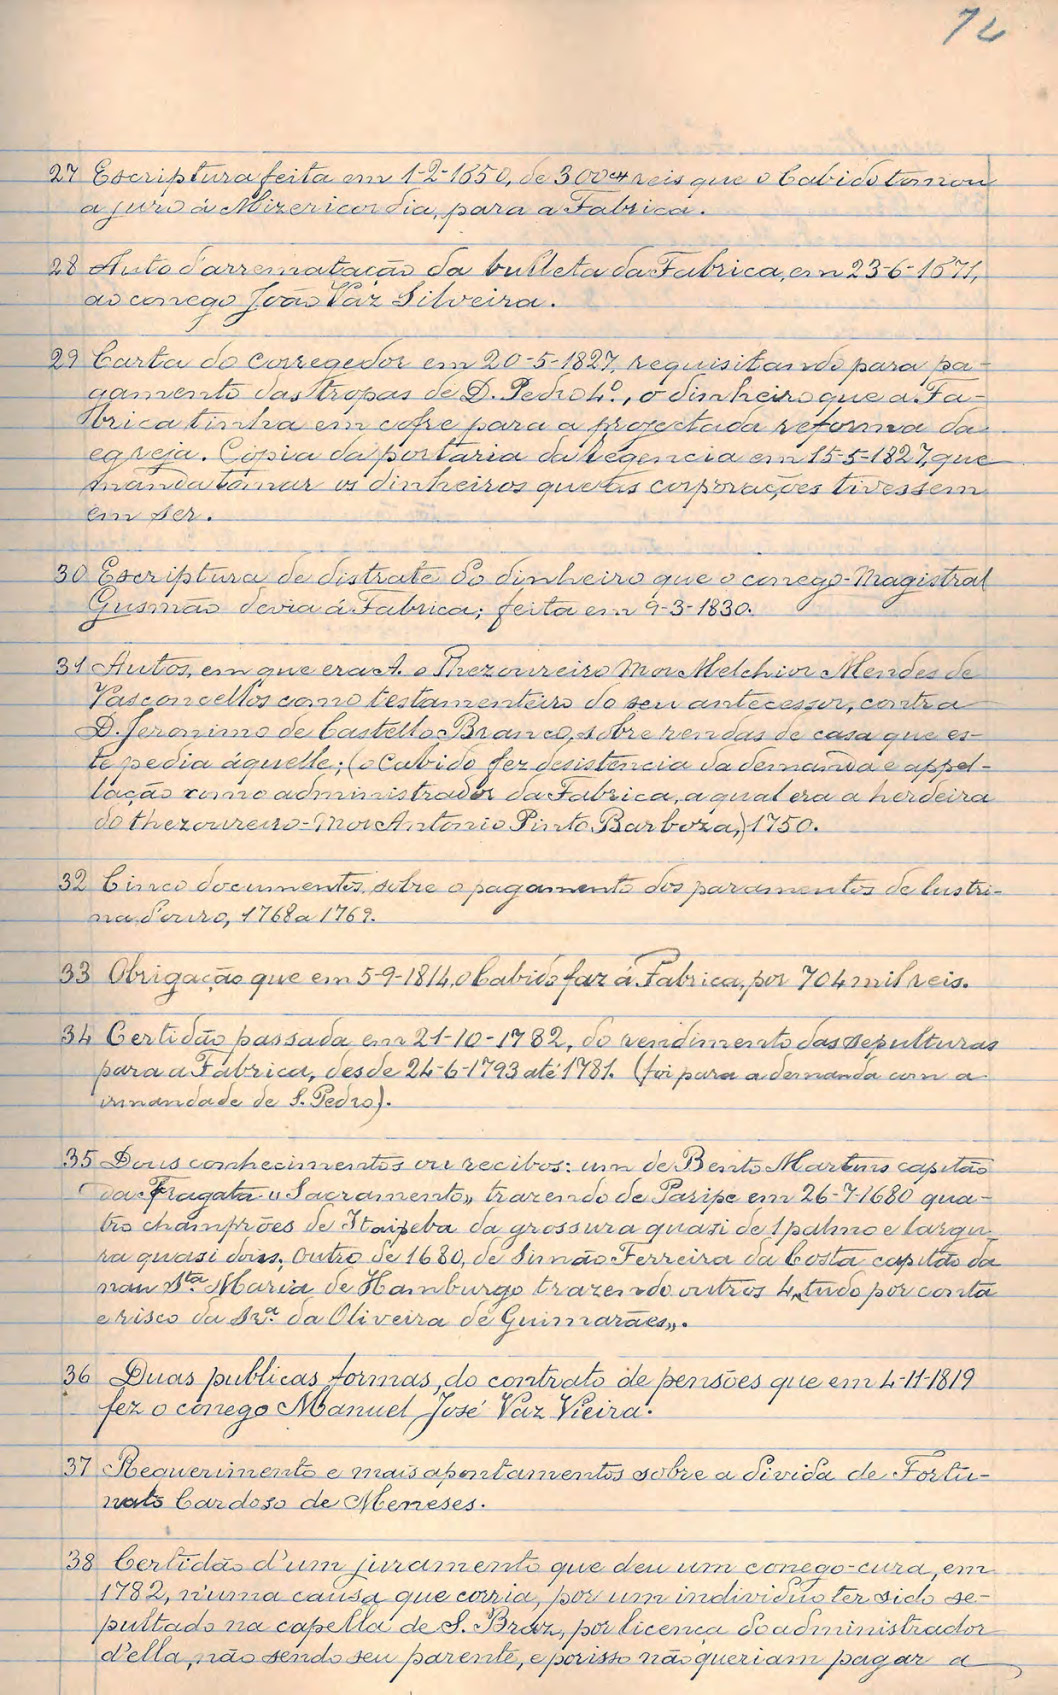 72
27 Escriptura feita em 1-2-1650, de 300 reis que o Cabido tomou
a juro á Mizericordia, para a Fabrica.
28 Auto d'arrematação da bulleta da Fabrica, em 23-6-1671,
ao conego João Vaz Silveira.
29 Carta do corregedor em 20-5-1827, requisitando para pa-
gamento das tropas de D. Pedro 4.º, o dinheiro que a Fa-
brica tinha em cofre para a projectada reforma da
egreja. Copia da portaria da regencia em 15-5-1827, que
manda tomar os dinheiros que as corporações tivessem
em ser.
30 Escriptura de distrate do dinheiro que o conego-Magistral
Gusmão devia á Fabrica; feita em 9-3-1830.
31 Autos, em que era A. o Thezoureiro Mor Melchior Mendes de
Vasconcellos como testamenteiro do seu antecessor, contra
D. Jeronimo de Castello Branco, sobre rendas de casa que es-
te pedia áquelle; (o Cabido fez desistencia da demanda e appel-
lação como administrador da Fabrica, a qual era a herdeira
do thezoureiro-Mor Antonio Pinto Barboza,) 1750.
32 Cinco documentos, sobre o pagamento dos paramentos de lustri-
na d'ouro, 1768 a 1769.
33 Obrigação que em 5-9-1814, o Cabido faz á Fabrica, por 704 mil reis.
34 Certidão passada em 21-10-1782, do rendimento das sepulturas
para a Fabrica, desde 24-6-1793 até 1781. (foi para a demanda com a
irmandade de S. Pedro).
35 Dous conhecimentos ou recibos: um de Bento Martins capitão
da Fragata "Sacramento„ trazendo de Paripe em 26-7-1680 qua-
tro champrões de Itaipeba da grossura quasi de 1 palmo e largu-
ra quasi dois. Outro de 1680, de Simão Ferreira da Costa capitão da
nau S.ta Maria de Hamburgo trazendo outros 4, tudo por conta
e risco da Sr.ª da Oliveira de Guimarães„.
36 Duas publicas formas, do contrato de pensões que em 4-11-1819
fez o conego Manuel José Vaz Vieira.
37 Requerimento e mais apontamentos sobre a divida de Fortu-
nato Cardoso de Meneses.
38 Certidão d'um juramento que deu um conego-cura, em
1782, n'uma causa que corria, por um individuo ter sido se-
pultado na capella de S. Braz, por licença do administrador
d'ella, não sendo seu parente, e porisso não queriam pagar a